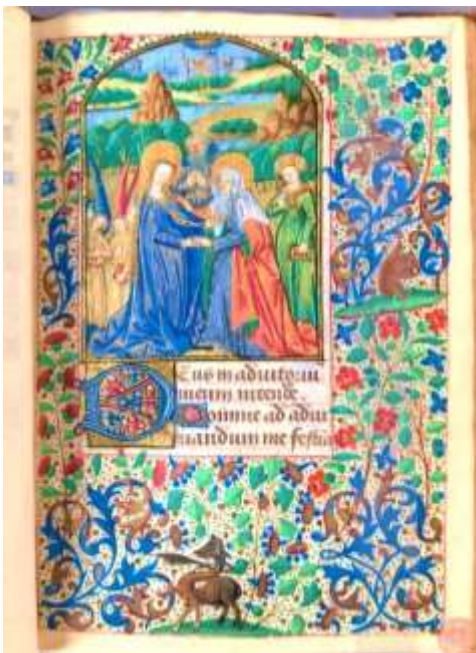 Deus in adiutoriu
meum intende.
Domine ad adiu
uandum me festina